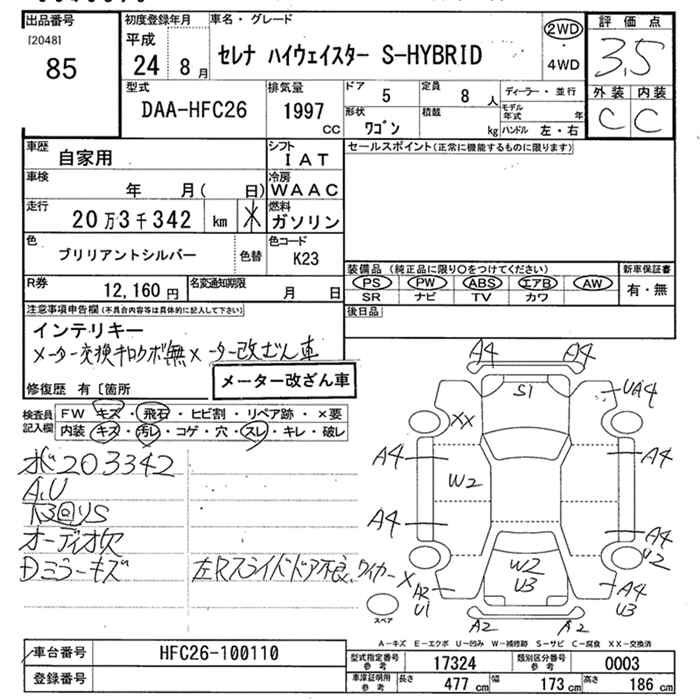 出品番号
[2048]
85
初度登録年月
平成
24 8 月
車名・グレード
セレナ ハイウェイスター S-HYBRID
2WD
・
4WD
評価点
3.5
外装 内装
C C
型式
DAA-HFC26
排気量
1997
CC
ドア
5
定員
8 人
形状
ワゴン
積載
kg
ディーラー・並行
モデル年式 年
ハンドル 左・右
車歴
自家用
シフト
IAT
車検
年 月( 日)
冷房
WAAC
走行
20万3千342 km *
燃料
ガソリン
色
ブリリアントシルバー
色替
色コード
K23
R券
12,160 円
名変通知期限
月 日
セールスポイント(正常に機能するものに限ります)
装備品 (純正品に限り○をつけてください)
PS PW ABS エアB AW
SR ナビ TV カワ
新車保証書
有・無
後日品
注意事項申告欄(不具合内容等は具体的に記入して下さい)
インテリキー
メーター交換キロクボ無 メーター改ざん車
修復歴 有〔箇所
メーター改ざん車
検査員記入欄
FW キズ・飛石・ヒビ割・リペア跡・×要
内装 キズ・汚レ・コゲ・穴・スレ・キレ・破レ
ボ203342
A.U
オーディオ欠
Dミラーキズ
左Rスライドドア不良、ワイカーX
A4 A4
S1
UA4
XX
A4 A4
W2
A4 A4
W2
U3
U2
A2
U1
A4
U3
スペア
A2 A2
A-キズ E-エクボ U-凹み W-補修跡 S-サビ C-腐食 XX-交換済
車台番号
HFC26-100110
登録番号
型式指定番号 参考
17324
類別区分番号 参考
0003
車庫証明用 参考
長さ 477 cm 幅 173 cm 高さ 186 cm